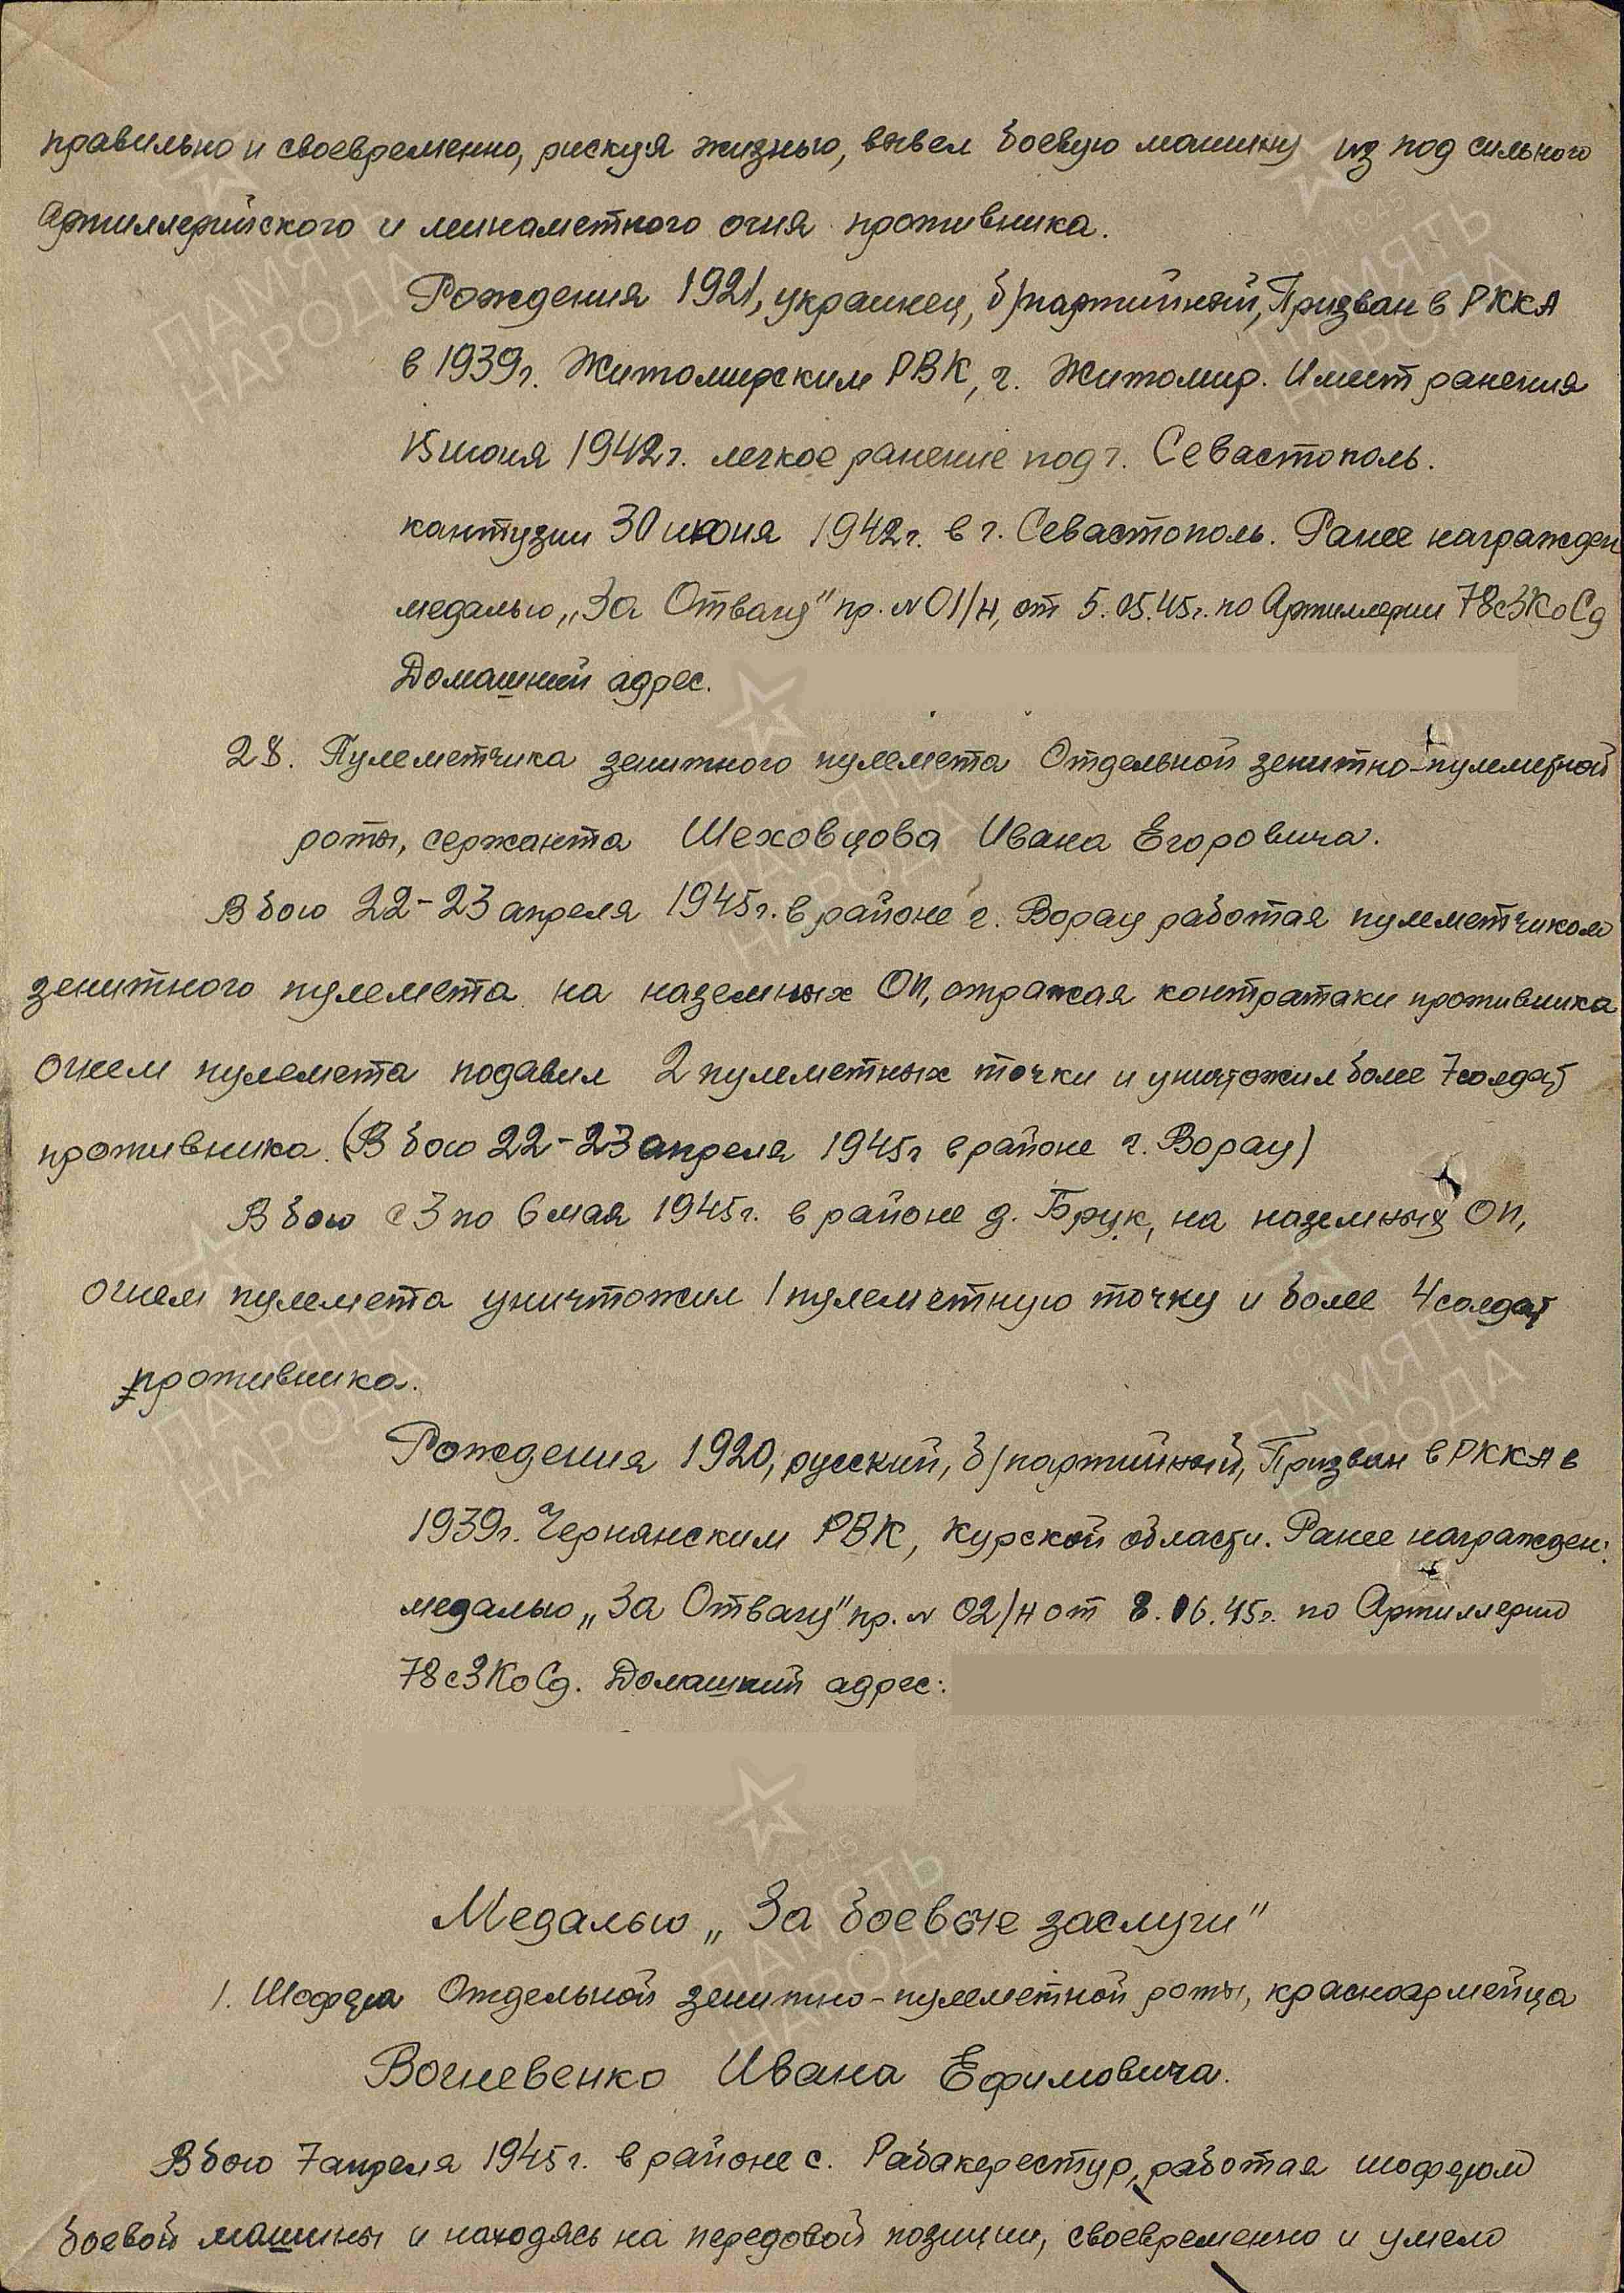 правильно и своевременно, рискуя жизнью, вывел боевую машину из под сильного
артиллерийского и минаметного огня противника.
Рождения 1921, украинец, б/партийный, Призван в РККА
в 1939г. Житомирским РВК, г. Житомир. Имеет ранения
15 июня 1942г. легкое ранение под г. Севастополь.
кантузии 30 июня 1942г. в г. Севастополь. Ранее награжден
медалью „За Отвагу" пр. №01/н, от 5.05.45г. по Артиллерии 78сЗКоСд
Домашний адрес.
28. Пулеметчика зенитного пулемета Отдельной зенитно-пулеметной
роты, сержанта Шеховцова Ивана Егоровича.
В бою 22-23 апреля 1945г. в районе г. Ворау работая пулеметчиком
зенитного пулемета на наземных ОП, отражая контратаки противника
огнем пулемета подавил 2 пулеметных точки и уничтожил более 7 солдат
противника. (В бою 22-23 апреля 1945г в районе г. Ворау)
В бою с 3 по 6 мая 1945г. в районе д. Брук, на наземных ОП,
огнем пулемета уничтожил 1 пулеметную точку и более 4 солдат
противника.
Рождения 1920, русский, б/партийный, Призван в РККА в
1939г. Чернянским РВК, Курской области. Ранее награжден:
медалью „За Отвагу" пр. № 02/н от 8.06.45г. по Артиллерию
78сЗКоСд. Домашний адрес:
Медалью „За боевые заслуги"
1. Шофера Отдельной зенитно-пулеметной роты, красноармейца
Вогневенко Ивана Ефимовича.
В бою 7 апреля 1945г. в районе с. Рабакерестур, работая шофером
боевой машины и находясь на передовой позиции, своевременно и умело
ПАМЯТЬ
НАРОДА